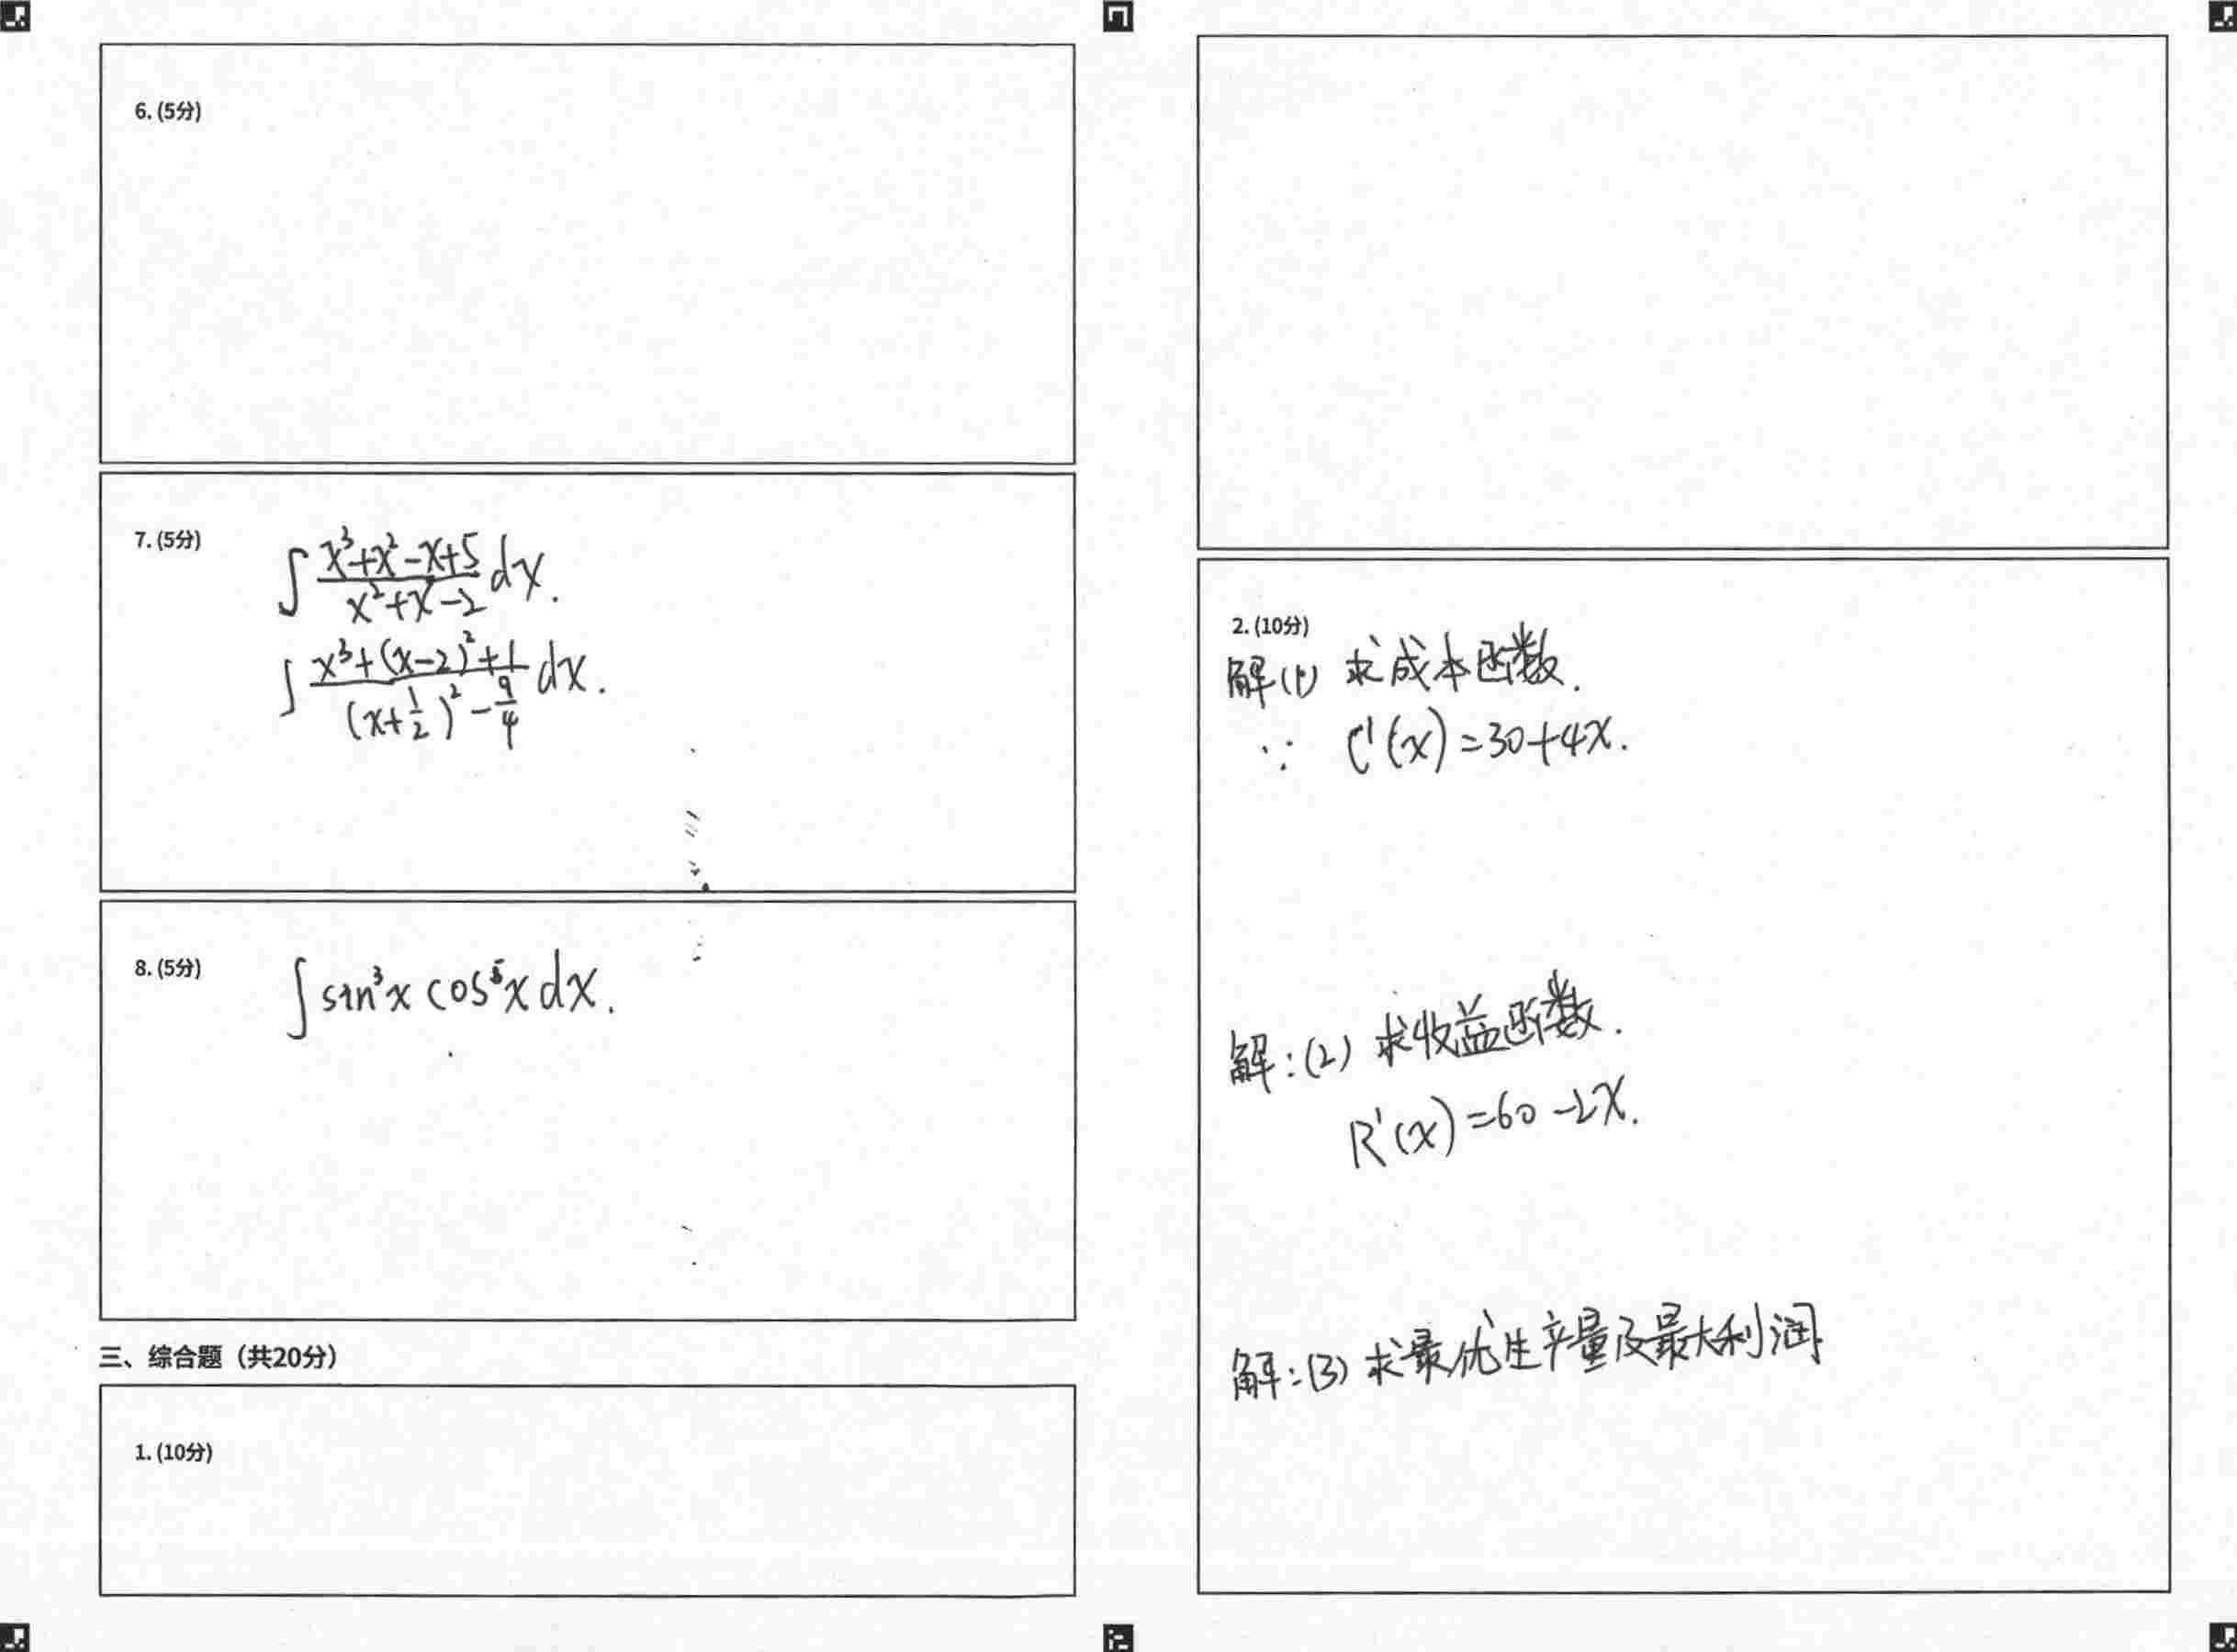 6. (5分)
7. (5分)
∫ (x³+x²-x+5)/(x²+x-2) dx.
∫ (x³+(x-2)²+1)/((x+1/2)²-9/4) dx.
8. (5分)
∫ sin³x cos⁵x dx.
三、综合题（共20分）
1. (10分)
2. (10分)
解(1) 求成本函数.
∵ C'(x)=30+4x.
解:(2) 求收益函数.
R'(x)=60-2x.
解:(3) 求最优生产量及最大利润